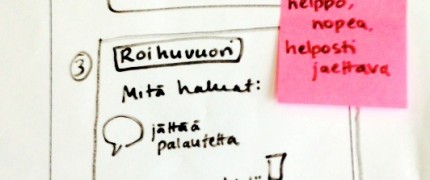 helppo,
nopea,
helposti
jaettava
3
Roihuvuori
Mitä haluat:
jättää
palautetta